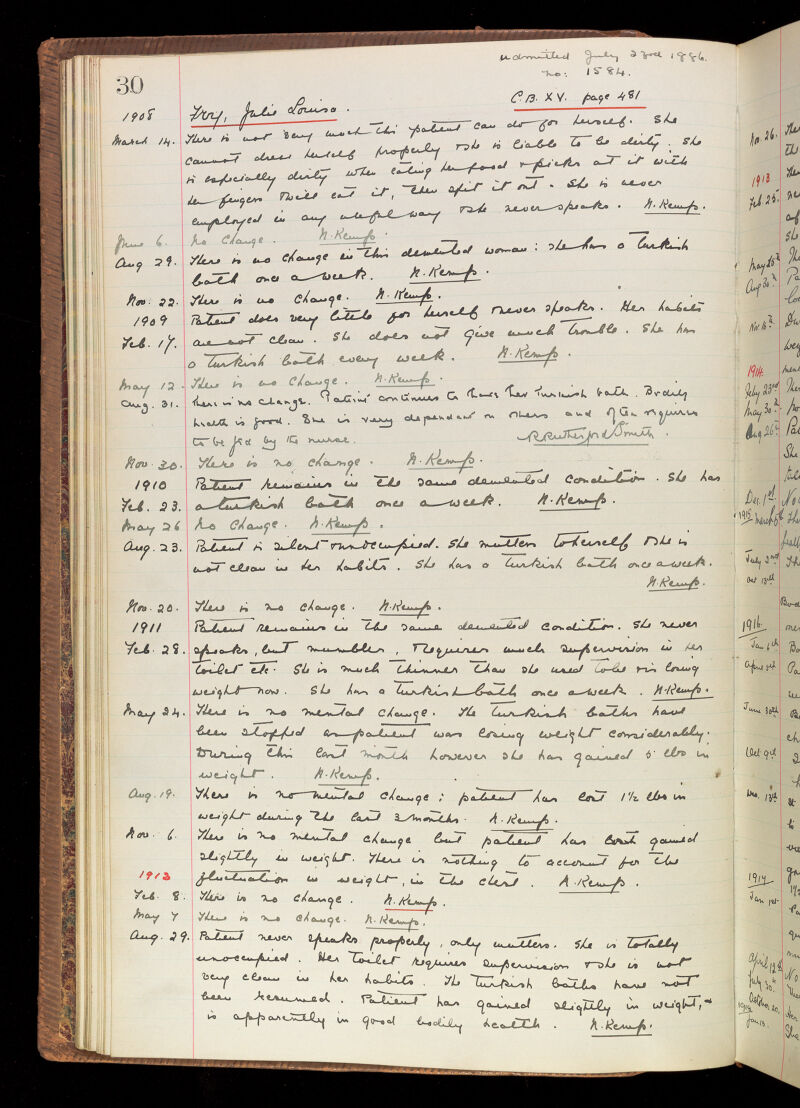 30
admitted July 23rd 1886.
no: 1584.
C.B. XV. page 481
1908 Troy, Julie Louisa.
March 14. There is not very much this patient can do for herself. She
cannot dress herself properly & she is liable to be dirty. She
is especially dirty when eating her food & picks at it with
her fingers & will eat it, then spit it out. She is never
employed in any useful way & she never speaks. N. Kemp.
June 6. No change. N. Kemp.
Aug 29. There is no change in this demented woman: she has a Turkish
bath once a week. N. Kemp.
Nov. 22. There is no change. N. Kemp.
1909 Patient does very little for herself & never speaks. Her habits
Feb. 17. are not clean. She does not give much trouble. She has
a Turkish bath every week. N. Kemp.
May 12. There is no change. N. Kemp.
Aug. 31. There is no change. Patient continues to have her Turkish bath. Bodily
health is good. She is very dependent on others and often requires
to be fed by the nurse. R Rutherford Smith.
Nov. 30. There is no change. N. Kemp.
1910 Patient remains in the same demented condition. She has
Feb. 23. a Turkish bath once a week. N. Kemp.
May 26 No change. N. Kemp.
Aug. 23. Patient is silent & unoccupied. She mutters to herself & she is
not clean in her habits. She has a Turkish bath once a week.
N. Kemp.
Nov. 20. There is no change. N. Kemp.
1911 Patient remains in the same demented condition. She never
Feb. 28. speaks, but mumbles, & requires much supervision in her
toilet etc. She is much thinner than she used to be & is losing
weight now. She has a Turkish bath once a week. N. Kemp.
May 24. There is no mental change. The Turkish baths have
been stopped as patient was losing weight considerably.
During this last month however she has gained 5 lbs in
weight. N. Kemp.
Aug. 19. There is no mental change; patient has lost 1½ lbs in
weight during the last 3 months. N. Kemp.
Nov. 6. There is no mental change but patient has gained
slightly in weight. There is nothing to account for the
1912 fluctuation in weight, in the chest. N. Kemp.
Feb. 8. There is no change. N. Kemp.
May 7 There is no change. N. Kemp.
Aug. 29. Patient never speaks properly, only mutters. She is totally
unoccupied. Her toilet requires supervision & she is not
very clean in her habits. The Turkish baths have not
been resumed. Patient has gained slightly in weight, &
is apparently in good bodily health. N. Kemp.
Nov. 26.
1913
Feb. 25.
May 25th
Aug 30th
Nov. 16th
1914
Feby 23rd
May 30th
Aug 26th
Dec. 1st
1915 March 5th
July 2nd
Oct 13th
1916
Jan 6th
April 3rd
June 30th
Oct 9th
1917
Jan 1st
April 12th
July 30th
October 20.
Jan 13.